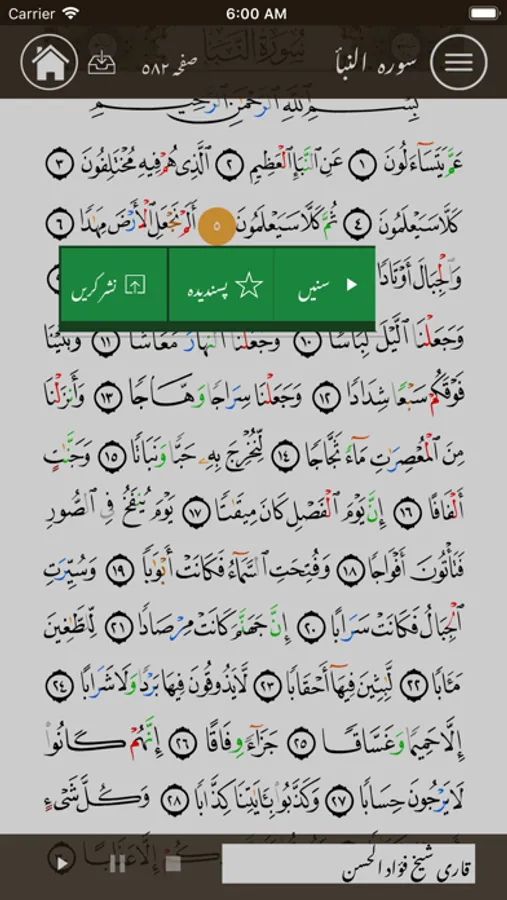 Carrier 6:00 AM
سورہ النبأ صفحہ ۵۸۲
سُورَةُ النَّبَإِ
بِسْمِ اللَّهِ الرَّحْمَٰنِ الرَّحِيمِ
عَمَّ يَتَسَآءَلُونَ ١ عَنِ النَّبَإِ الْعَظِيمِ ٢ الَّذِى هُمْ فِيهِ مُخْتَلِفُونَ ٣
كَلَّا سَيَعْلَمُونَ ٤ ثُمَّ كَلَّا سَيَعْلَمُونَ ٥ أَلَمْ نَجْعَلِ الْأَرْضَ مِهَٰدًا ٦
وَالْجِبَالَ أَوْتَادًا
سنیں
پسندیدہ
نشر کریں
وَجَعَلْنَا الَّيْلَ لِبَاسًا ١٠ وَجَعَلْنَا النَّهَارَ مَعَاشًا ١١ وَبَنَيْنَا
فَوْقَكُمْ سَبْعًا شِدَادًا ١٢ وَجَعَلْنَا سِرَاجًا وَهَّاجًا ١٣ وَأَنزَلْنَا
مِنَ الْمُعْصِرَٰتِ مَآءً ثَجَّاجًا ١٤ لِّنُخْرِجَ بِهِۦ حَبًّا وَنَبَاتًا ١٥ وَجَنَّٰتٍ
أَلْفَافًا ١٦ إِنَّ يَوْمَ الْفَصْلِ كَانَ مِيقَٰتًا ١٧ يَوْمَ يُنفَخُ فِى الصُّورِ
فَتَأْتُونَ أَفْوَاجًا ١٨ وَفُتِحَتِ السَّمَآءُ فَكَانَتْ أَبْوَٰبًا ١٩ وَسُيِّرَتِ
الْجِبَالُ فَكَانَتْ سَرَابًا ٢٠ إِنَّ جَهَنَّمَ كَانَتْ مِرْصَادًا ٢١ لِّلطَّٰغِينَ
مَـَٔابًا ٢٢ لَّٰبِثِينَ فِيهَآ أَحْقَابًا ٢٣ لَّا يَذُوقُونَ فِيهَا بَرْدًا وَلَا شَرَابًا ٢٤
إِلَّا حَمِيمًا وَغَسَّاقًا ٢٥ جَزَآءً وِفَاقًا ٢٦ إِنَّهُمْ كَانُوا
لَا يَرْجُونَ حِسَابًا ٢٧ وَكَذَّبُوا بِـَٔايَٰتِنَا كِذَّابًا ٢٨ وَكُلَّ شَىْءٍ
قاری شیخ فؤاد الحسن